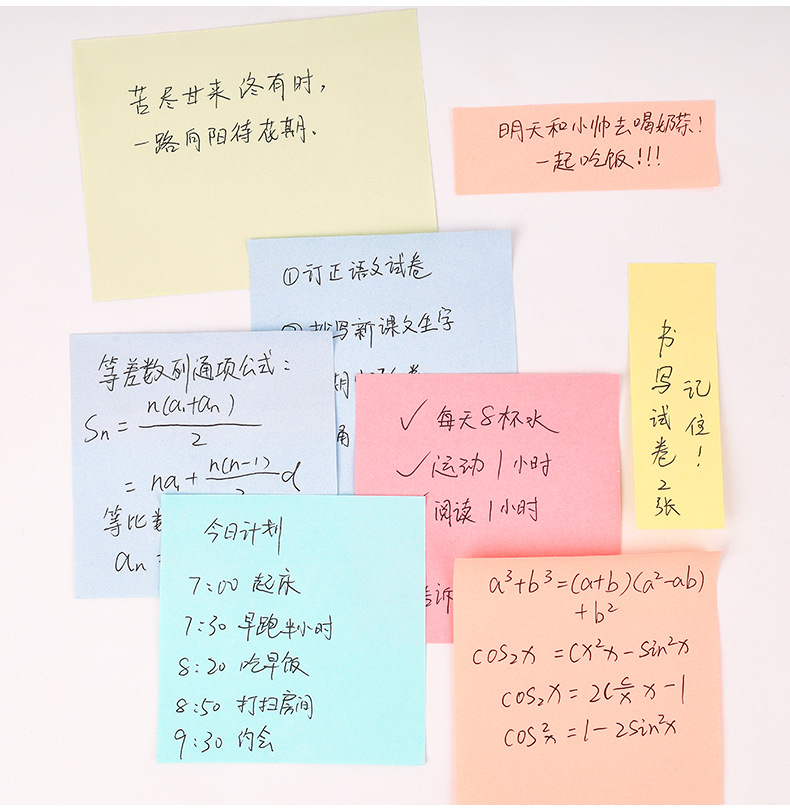 苦尽甘来终有时，
一路向阳待花期.
明天和小帅去喝奶茶！
一起吃饭!!!
①订正语文试卷
抄写新课文生字
记住！
书写试卷2张
等差数列通项公式：
Sn = n(a₁+an) / 2
= na₁ + n(n-1) / 2 d
等比数
an =
✓ 每天8杯水
✓ 运动1小时
阅读1小时
告诉
今日计划
7:00 起床
7:30 早跑半小时
8:20 吃早饭
8:50 打扫房间
9:30 约会
a³+b³=(a+b)(a²-ab)
+b²
cos₂x =Cx²x-sin²x
cos₂x = 2(c/x x-1
cos²x =1-2sin²x